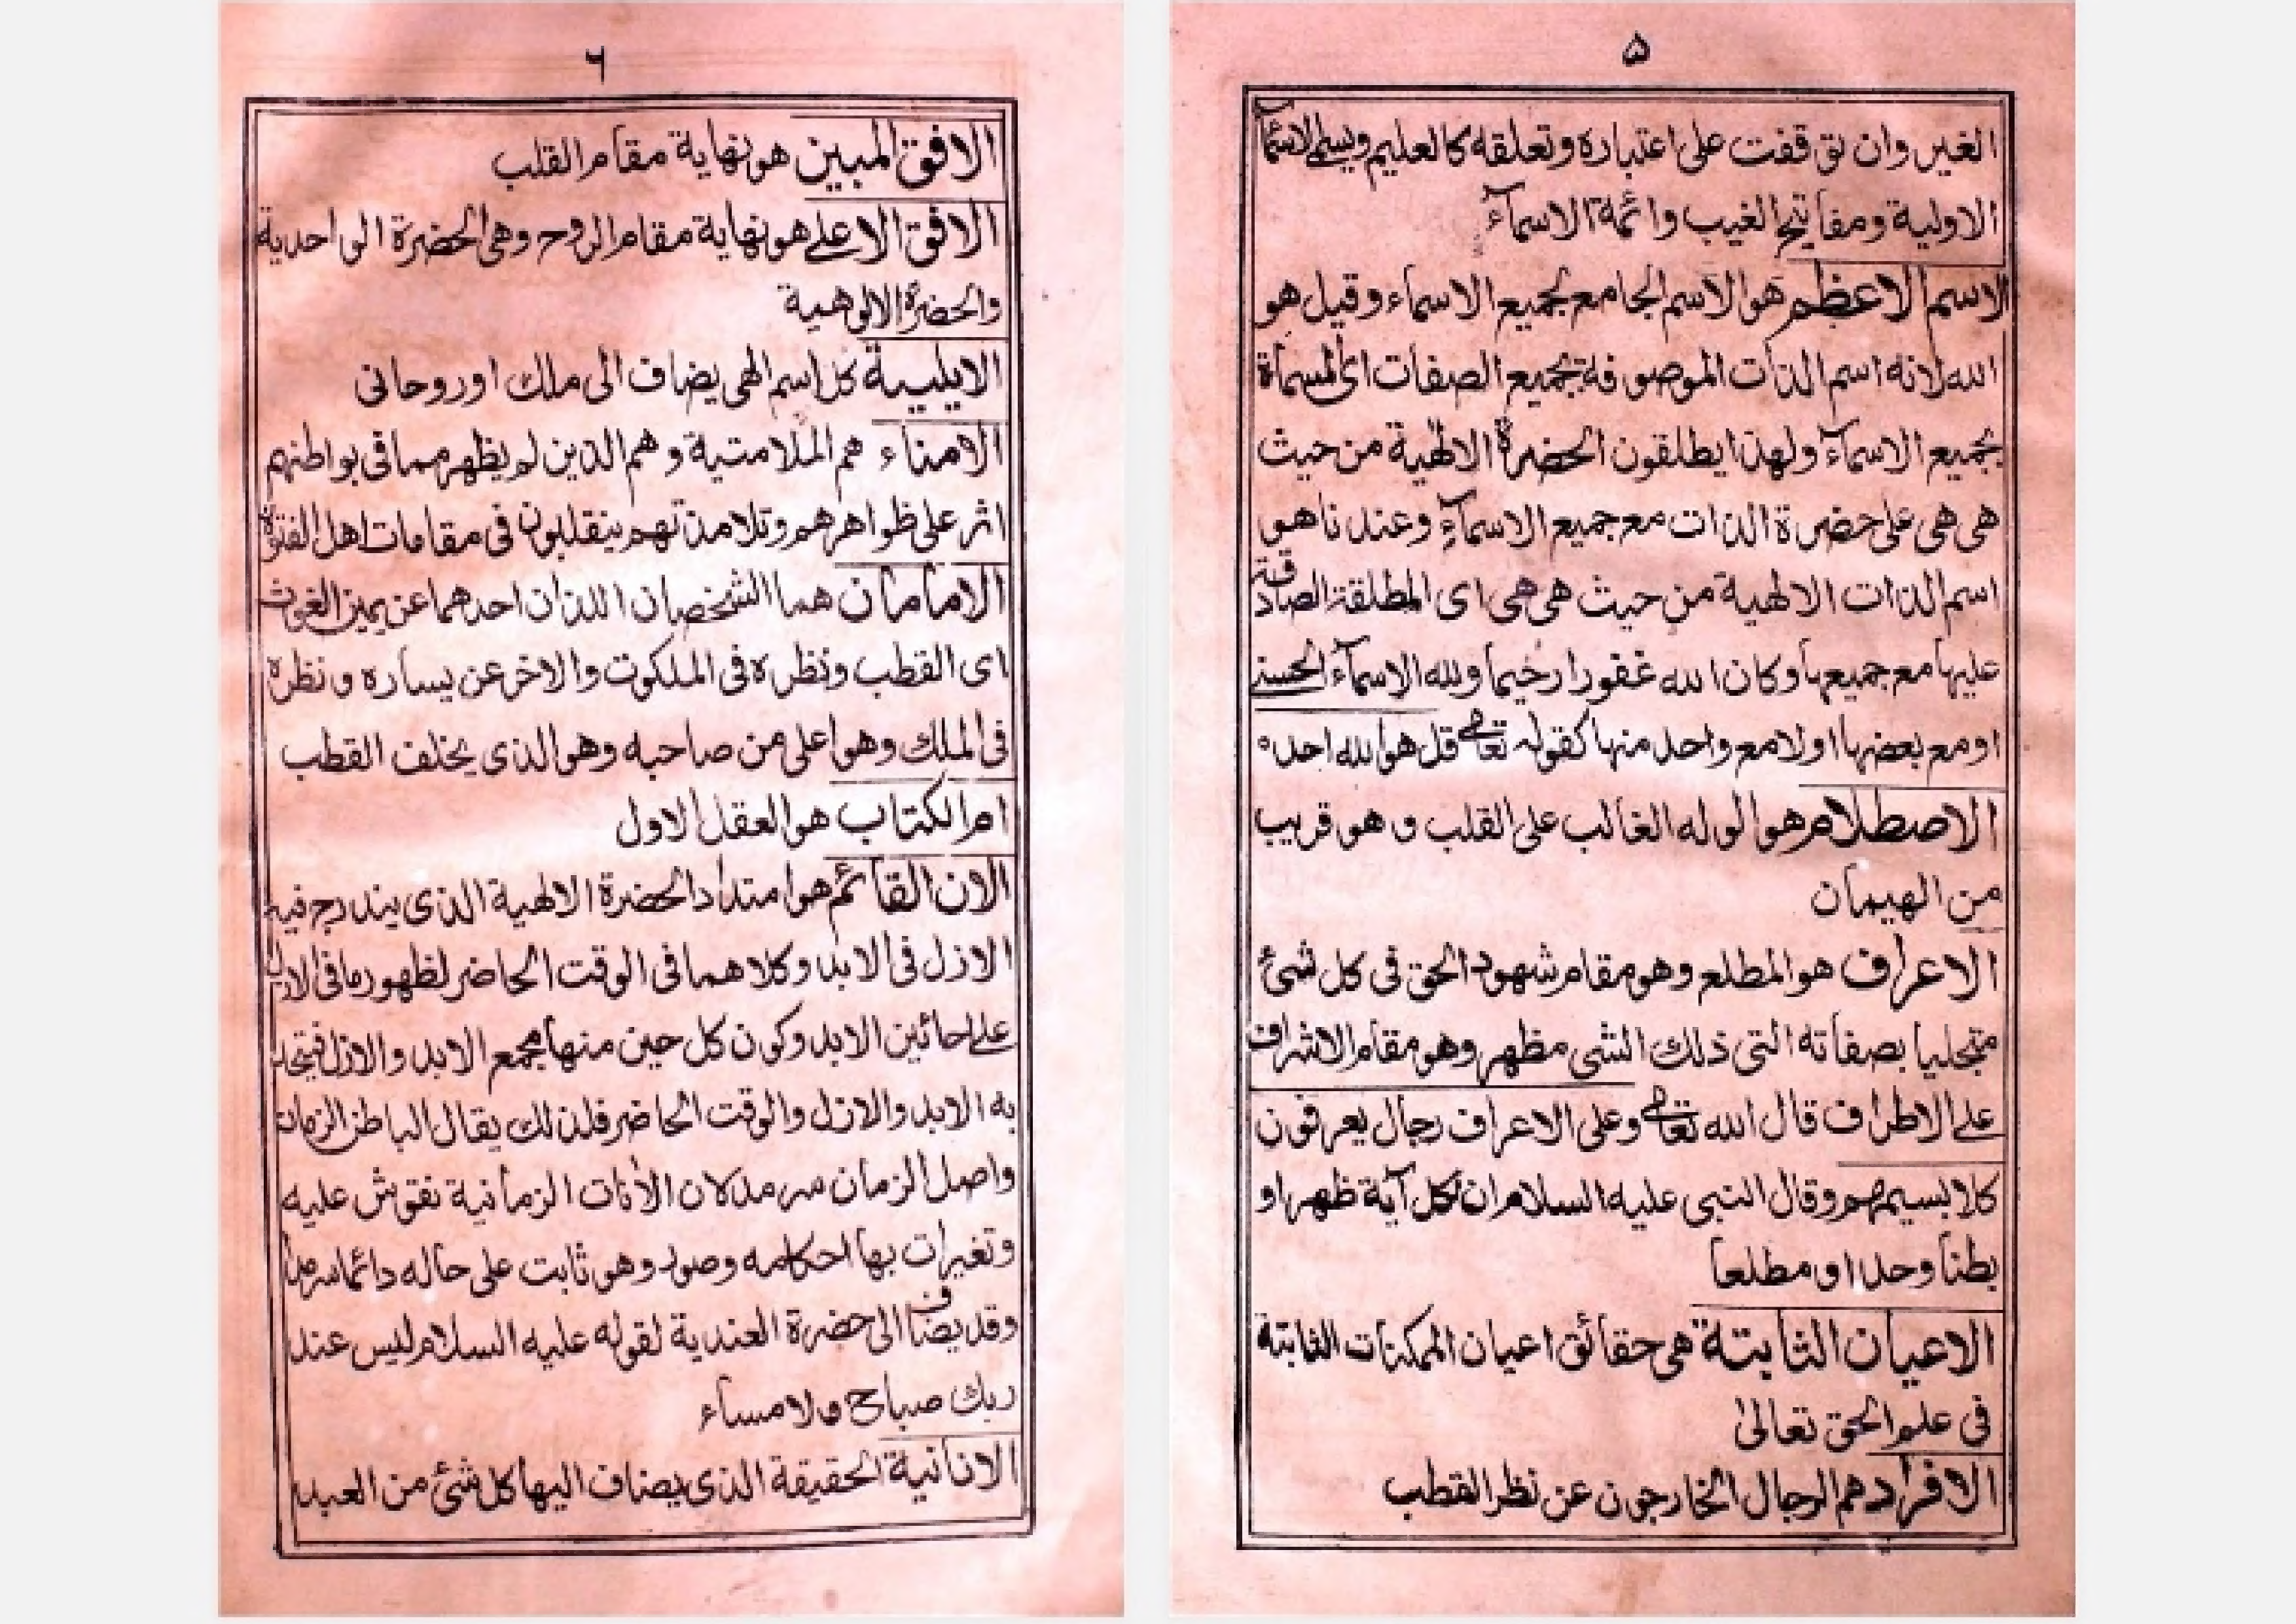 ۵
الغير وان توقفت على اعتباره وتعلقه كالعليم ويسمى الاسمآ
الاولية ومفاتيح الغيب وائمة الاسمآء
الاسم الاعظم هو الاسم الجامع لجميع الاسماء وقيل هو
الله لانه اسم الذات الموصوفة بجميع الصفات اى المسماة
بجميع الاسمآء ولهذا يطلقون الحضرة الالهية من حيث
هى هى على حضرة الذات مع جميع الاسمآء وعندنا هو
اسم الذات الالهية من حيث هى هى اى المطلقة الصادقة
عليها مع جميعها وكان الله غفورا رحيما ولله الاسمآء الحسنى
او مع بعضها او لا مع واحد منها كقوله تعالى قل هو الله احد ه
الاصطلام هو الوله الغالب على القلب و هو قريب
من الهيمان
الاعراف هو المطلع وهو مقام شهود الحق فى كل شئ
متجليا بصفاته التى ذلك الشى مظهر وهو مقام الاشراف
على الاطراف قال الله تعالى وعلى الاعراف رجال يعرفون
كلا بسيمهم وقال النبى عليه السلام ان لكل آية ظهرا و
بطنا وحدا و مطلعا
الاعيان الثابتة هى حقائق اعيان الممكنات الثابتة
فى علم الحق تعالىٰ
الافراد هم الرجال الخارجون عن نظر القطب
۶
الافق المبين هو نهاية مقام القلب
الافق الاعلے هو نهاية مقام الروح وهى الحضرة الواحدية
والحضرة الالوهية
الايلية كل اسم الهى يضاف الى ملك او روحانى
الامناء هم الملامتية و هم الذين لم يظهر مما فى بواطنهم
اثر على ظواهرهم وتلامذتهم ينقلبون فى مقامات اهل الفتوة
الامامان هما الشخصان اللذان احدهما عن يمين الغوث
اى القطب ونظره فى الملكوت والاخر عن يساره و نظره
فى الملك وهو اعلى من صاحبه وهو الذى يخلف القطب
ام الكتاب هو العقل الاول
الان القائم هو امتداد الحضرة الالهية الذى يندرج فيه
الازل فى الابد وكلاهما فى الوقت الحاضر لظهور ما فى الازل
على احائين الابد وكون كل حين منها مجمع الابد والازل فيتحد
به الابد والازل والوقت الحاضر فلذلك يقال الباطن الزمان
واصل الزمان سرمد لان الأنات الزمانية نقوش عليه
وتغيرات بها احكامه وصوره وهو ثابت على حاله دائما سرمدا
وقد يضاف الى حضرة العندية لقوله عليه السلام ليس عند
ربك صباح ولا مساء
الانانية الحقيقة الذى يضاف اليها كل شئ من العبد